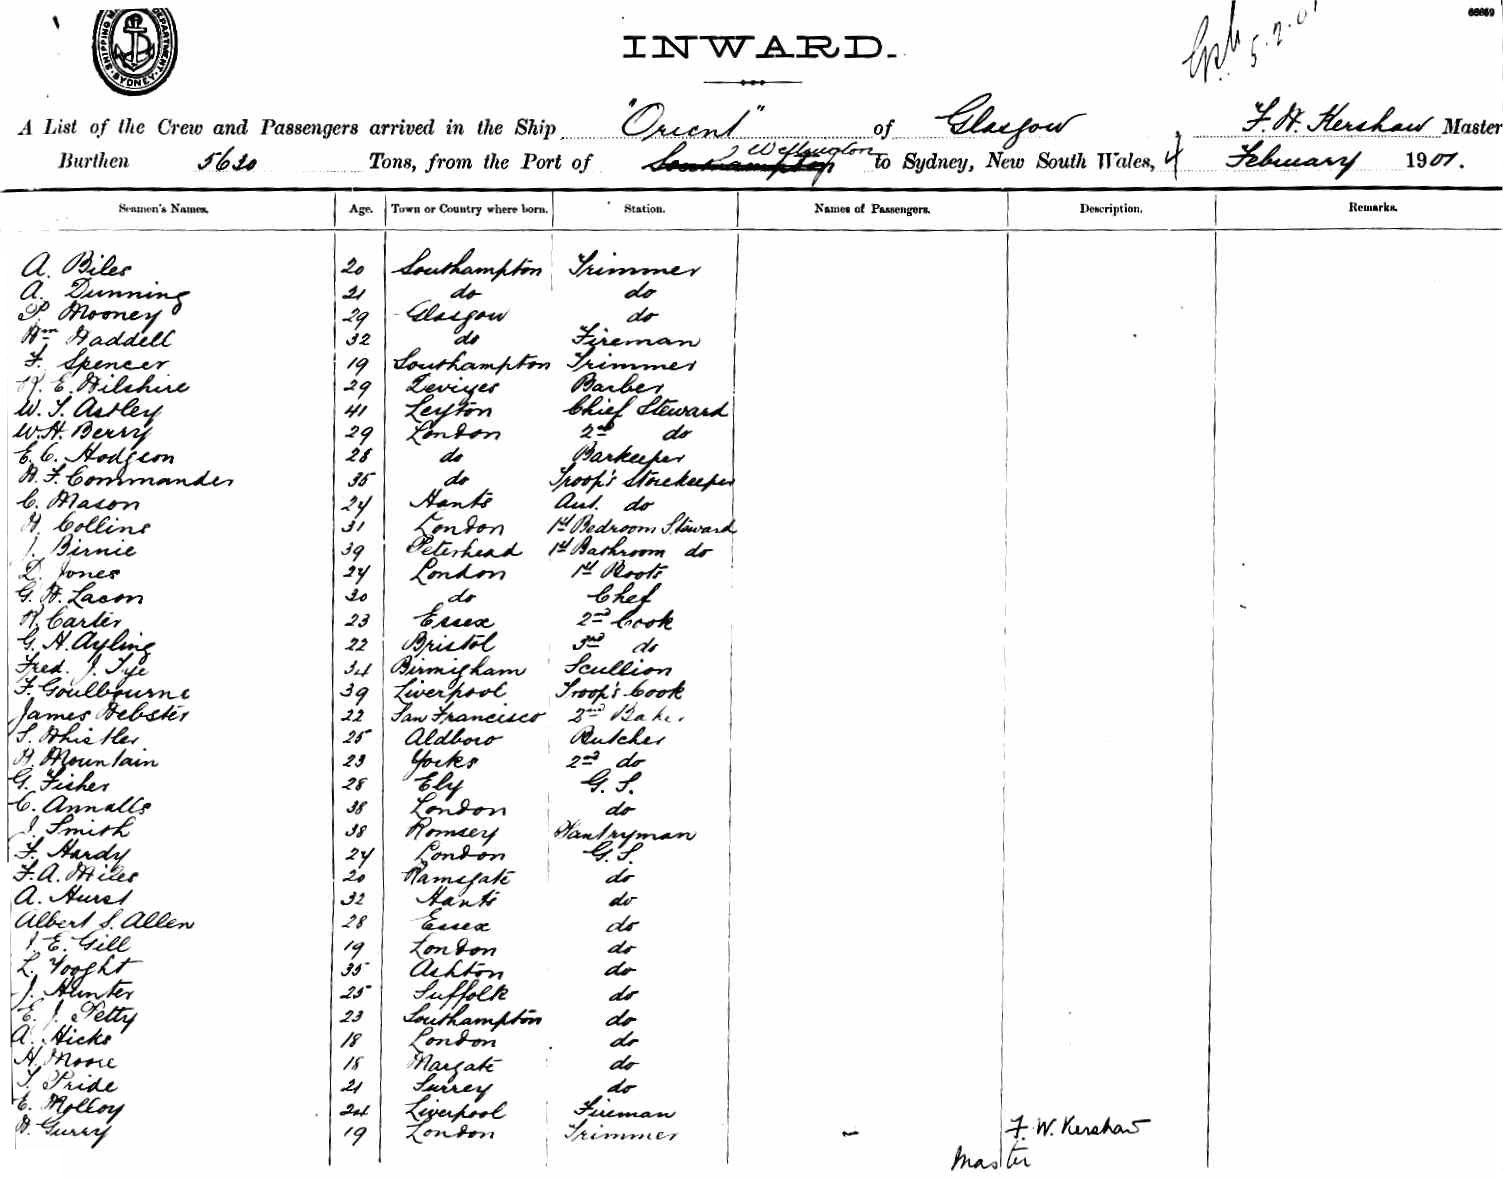 66669
SHIPPING MA DEPARTMENT SYDNEY
INWARD.
5.2.01
A List of the Crew and Passengers arrived in the Ship "Orient" of Glasgow, F. W. Kershaw Master
Burthen 5630 Tons, from the Port of Southampton Wellington to Sydney, New South Wales, 4 February 1901.
Seamen's Names. Age. Town or Country where born. Station. Names of Passengers. Description. Remarks.
A. Biles 20 Southampton Trimmer
A. Dunning 21 do do
P. Mooney 29 Glasgow do
Wm Waddell 32 do Fireman
F. Spencer 19 Southampton Trimmer
E. Wilshire 29 Devizes Barber
W. T. Astley 41 Leyton Chief Steward
W. H. Berry 29 London 2nd do
E. C. Hodgson 28 do Barkeeper
W. F. Commander 35 do Troop's Storekeeper
C. Mason 24 Hants Asst. do
W. Collins 31 London 1st Bedroom Steward
J. Birnie 39 Peterhead 1st Bathroom do
D. Jones 24 London 1st Boots
G. W. Lacon 30 do Chef
R. Carter 23 Essex 2nd Cook
G. H. Ayling 22 Bristol 3rd do
Fred. J. Tye 34 Birmigham Scullion
F. Goulbourne 39 Liverpool Troop's Cook
James Webster 22 San Francisco 2nd Baker
S. Whistler 25 Aldboro Butcher
W. Mountain 23 Yorks 2nd do
G. Fisher 28 Ely G. S.
C. Annalls 38 London do
J. Smith 38 Romsey Plantryman
F. Hardy 24 London G. S.
F. A. Miles 20 Ramsgate do
A. Hurst 32 Hants do
Albert S. Allen 28 Essex do
J. E. Gill 19 London do
L. Vooght 35 Ashton do
J. Hunter 25 Suffolk do
E. J. Petty 23 Southampton do
A. Hicks 18 London do
H. Moore 18 Margate do
T. Pride 21 Surrey do
E. Molloy 24 Liverpool Fireman
W. Gurry 19 London Trimmer
F. W. Kershaw
Master